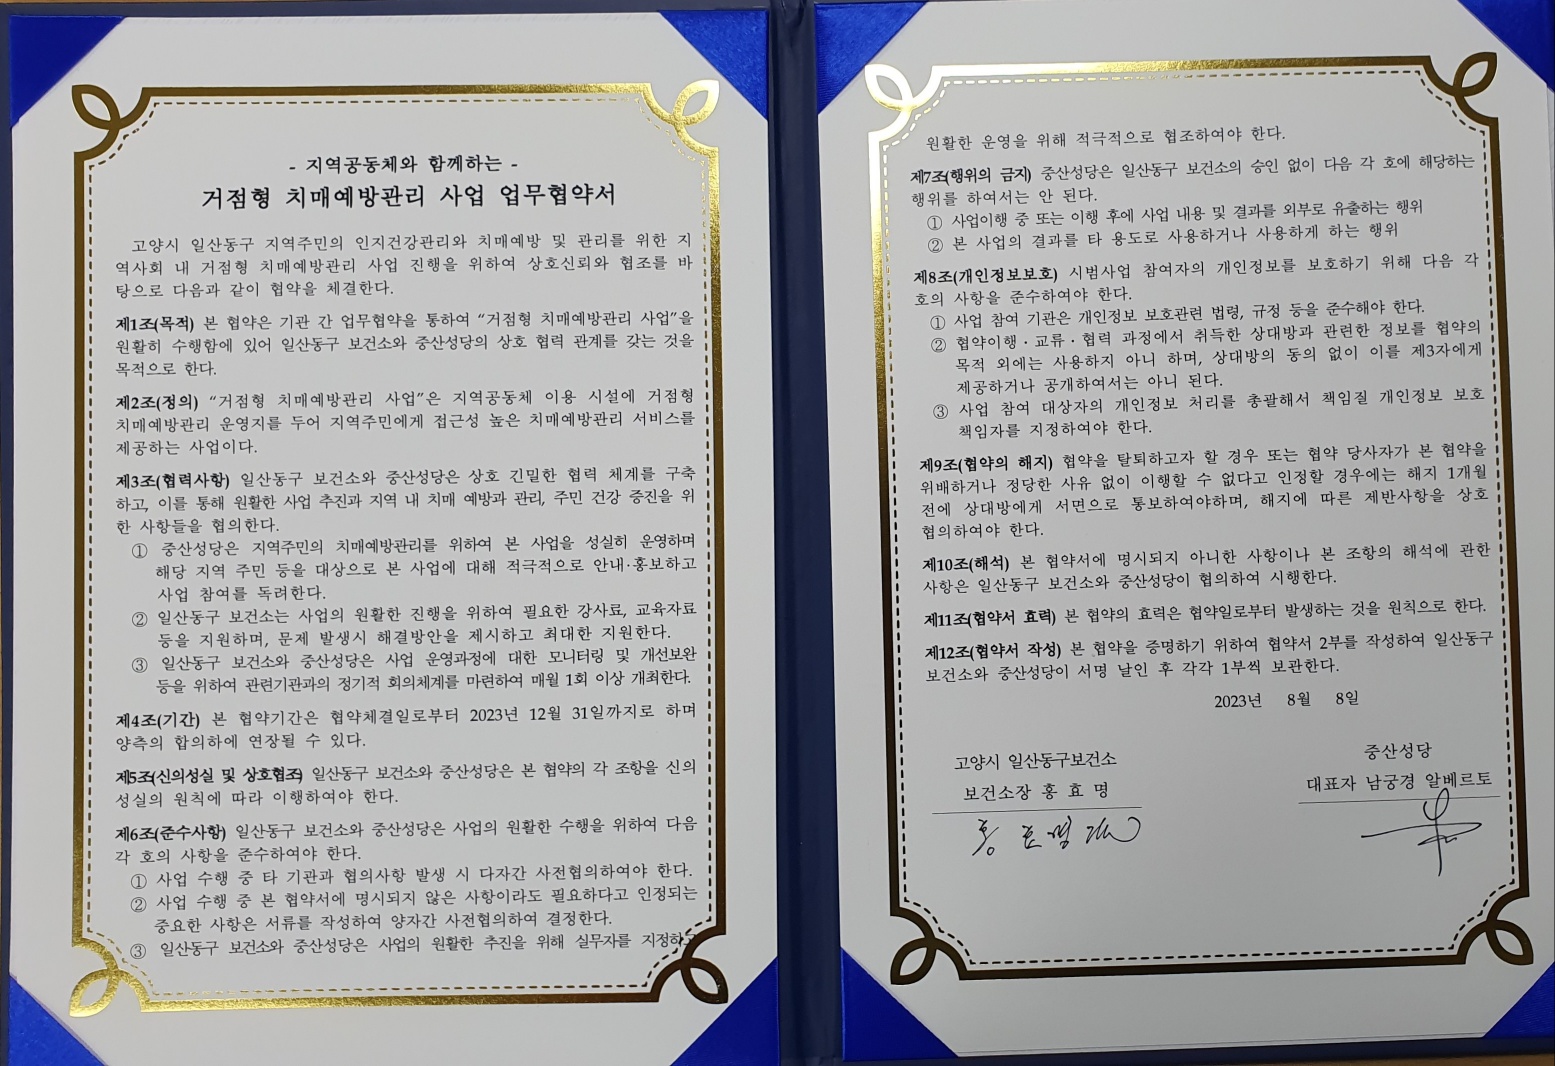 - 지역공동체와 함께하는 -
거점형 치매예방관리 사업 업무협약서
고양시 일산동구 지역주민의 인지건강관리와 치매예방 및 관리를 위한 지
역사회 내 거점형 치매예방관리 사업 진행을 위하여 상호신뢰와 협조를 바
탕으로 다음과 같이 협약을 체결한다.
제1조(목적) 본 협약은 기관 간 업무협약을 통하여 “거점형 치매예방관리 사업”을
원활히 수행함에 있어 일산동구 보건소와 중산성당의 상호 협력 관계를 갖는 것을
목적으로 한다.
제2조(정의) “거점형 치매예방관리 사업”은 지역공동체 이용 시설에 거점형
치매예방관리 운영지를 두어 지역주민에게 접근성 높은 치매예방관리 서비스를
제공하는 사업이다.
제3조(협력사항) 일산동구 보건소와 중산성당은 상호 긴밀한 협력 체계를 구축
하고, 이를 통해 원활한 사업 추진과 지역 내 치매 예방과 관리, 주민 건강 증진을 위
한 사항들을 협의한다.
① 중산성당은 지역주민의 치매예방관리를 위하여 본 사업을 성실히 운영하며
해당 지역 주민 등을 대상으로 본 사업에 대해 적극적으로 안내·홍보하고
사업 참여를 독려한다.
② 일산동구 보건소는 사업의 원활한 진행을 위하여 필요한 강사료, 교육자료
등을 지원하며, 문제 발생시 해결방안을 제시하고 최대한 지원한다.
③ 일산동구 보건소와 중산성당은 사업 운영과정에 대한 모니터링 및 개선보완
등을 위하여 관련기관과의 정기적 회의체계를 마련하여 매월 1회 이상 개최한다.
제4조(기간) 본 협약기간은 협약체결일로부터 2023년 12월 31일까지로 하며
양측의 합의하에 연장될 수 있다.
제5조(신의성실 및 상호협조) 일산동구 보건소와 중산성당은 본 협약의 각 조항을 신의
성실의 원칙에 따라 이행하여야 한다.
제6조(준수사항) 일산동구 보건소와 중산성당은 사업의 원활한 수행을 위하여 다음
각 호의 사항을 준수하여야 한다.
① 사업 수행 중 타 기관과 협의사항 발생 시 다자간 사전협의하여야 한다.
② 사업 수행 중 본 협약서에 명시되지 않은 사항이라도 필요하다고 인정되는
중요한 사항은 서류를 작성하여 양자간 사전협의하여 결정한다.
③ 일산동구 보건소와 중산성당은 사업의 원활한 추진을 위해 실무자를 지정하고
원활한 운영을 위해 적극적으로 협조하여야 한다.
제7조(행위의 금지) 중산성당은 일산동구 보건소의 승인 없이 다음 각 호에 해당하는
행위를 하여서는 안 된다.
① 사업이행 중 또는 이행 후에 사업 내용 및 결과를 외부로 유출하는 행위
② 본 사업의 결과를 타 용도로 사용하거나 사용하게 하는 행위
제8조(개인정보보호) 시범사업 참여자의 개인정보를 보호하기 위해 다음 각
호의 사항을 준수하여야 한다.
① 사업 참여 기관은 개인정보 보호관련 법령, 규정 등을 준수해야 한다.
② 협약이행 · 교류 · 협력 과정에서 취득한 상대방과 관련한 정보를 협약의
목적 외에는 사용하지 아니 하며, 상대방의 동의 없이 이를 제3자에게
제공하거나 공개하여서는 아니 된다.
③ 사업 참여 대상자의 개인정보 처리를 총괄해서 책임질 개인정보 보호
책임자를 지정하여야 한다.
제9조(협약의 해지) 협약을 탈퇴하고자 할 경우 또는 협약 당사자가 본 협약을
위배하거나 정당한 사유 없이 이행할 수 없다고 인정할 경우에는 해지 1개월
전에 상대방에게 서면으로 통보하여야하며, 해지에 따른 제반사항을 상호
협의하여야 한다.
제10조(해석) 본 협약서에 명시되지 아니한 사항이나 본 조항의 해석에 관한
사항은 일산동구 보건소와 중산성당이 협의하여 시행한다.
제11조(협약서 효력) 본 협약의 효력은 협약일로부터 발생하는 것을 원칙으로 한다.
제12조(협약서 작성) 본 협약을 증명하기 위하여 협약서 2부를 작성하여 일산동구
보건소와 중산성당이 서명 날인 후 각각 1부씩 보관한다.
2023년 8월 8일
고양시 일산동구보건소
보건소장 홍 효 명
중산성당
대표자 남궁경 알베르토